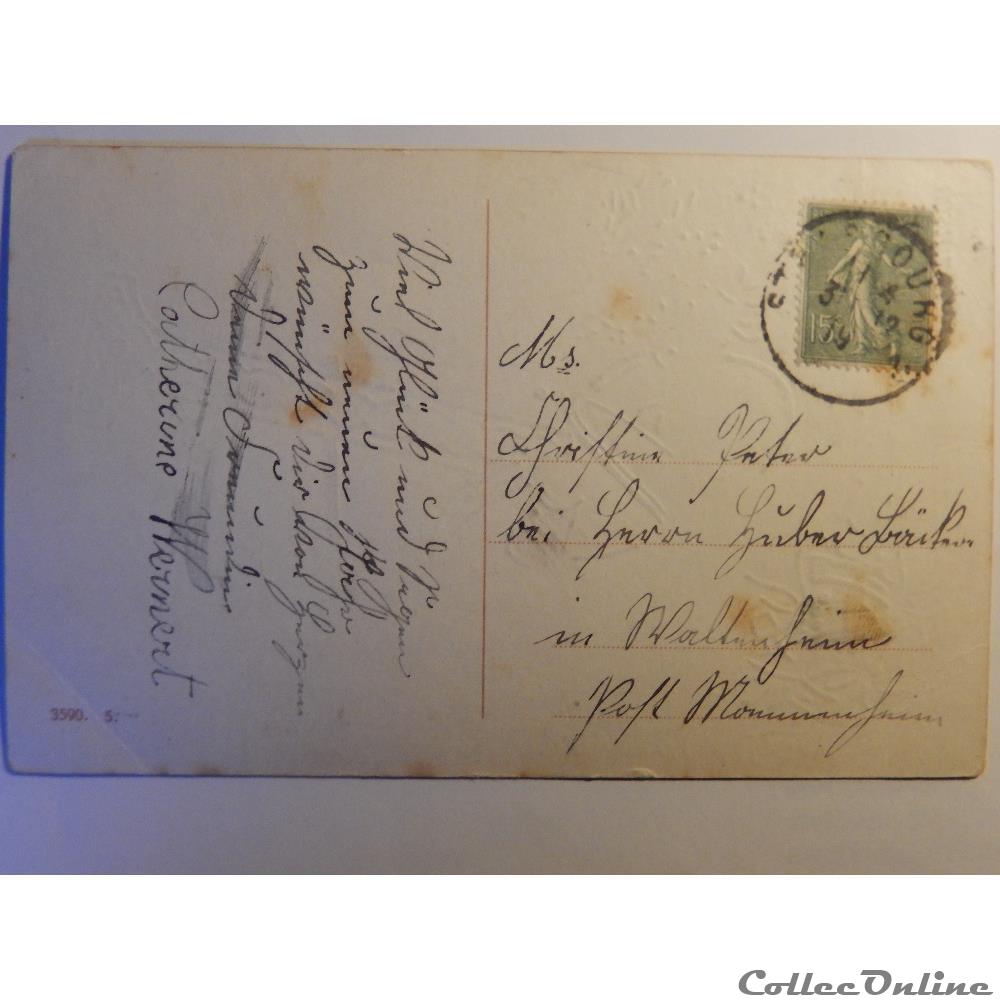 Viel Glück und Segen
zum neuen Jahre
wünscht dir von Herzen
Deine Freundin
Catherine Wernert
3590. 5.
STRASBOURG
31 12 19
15
Ms.
Christine Peter
bei Herrn Huber Bäcker
in Waltenheim
Post Mommenheim
CollecOnline